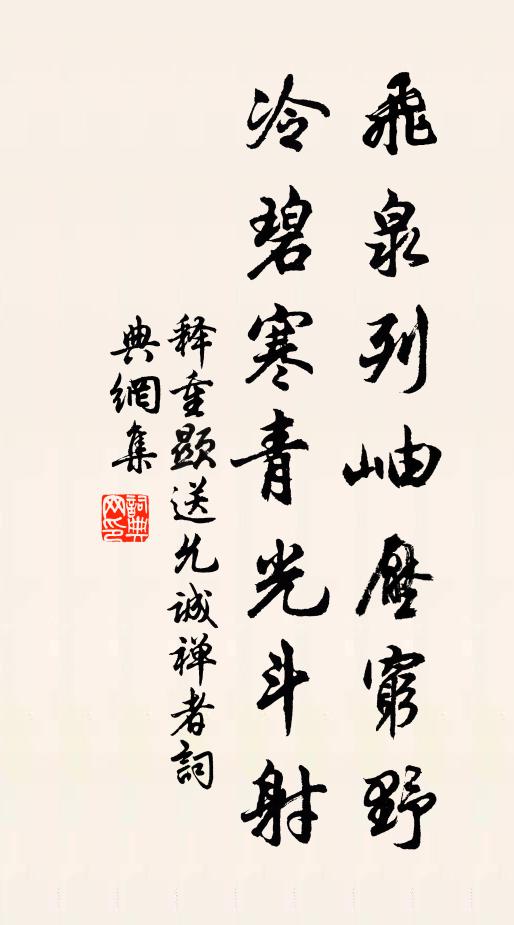 飛泉列岫壓窮野
冷碧寒青光斗射
釋重顯送允誠禅者詞
典網集
詞典網印